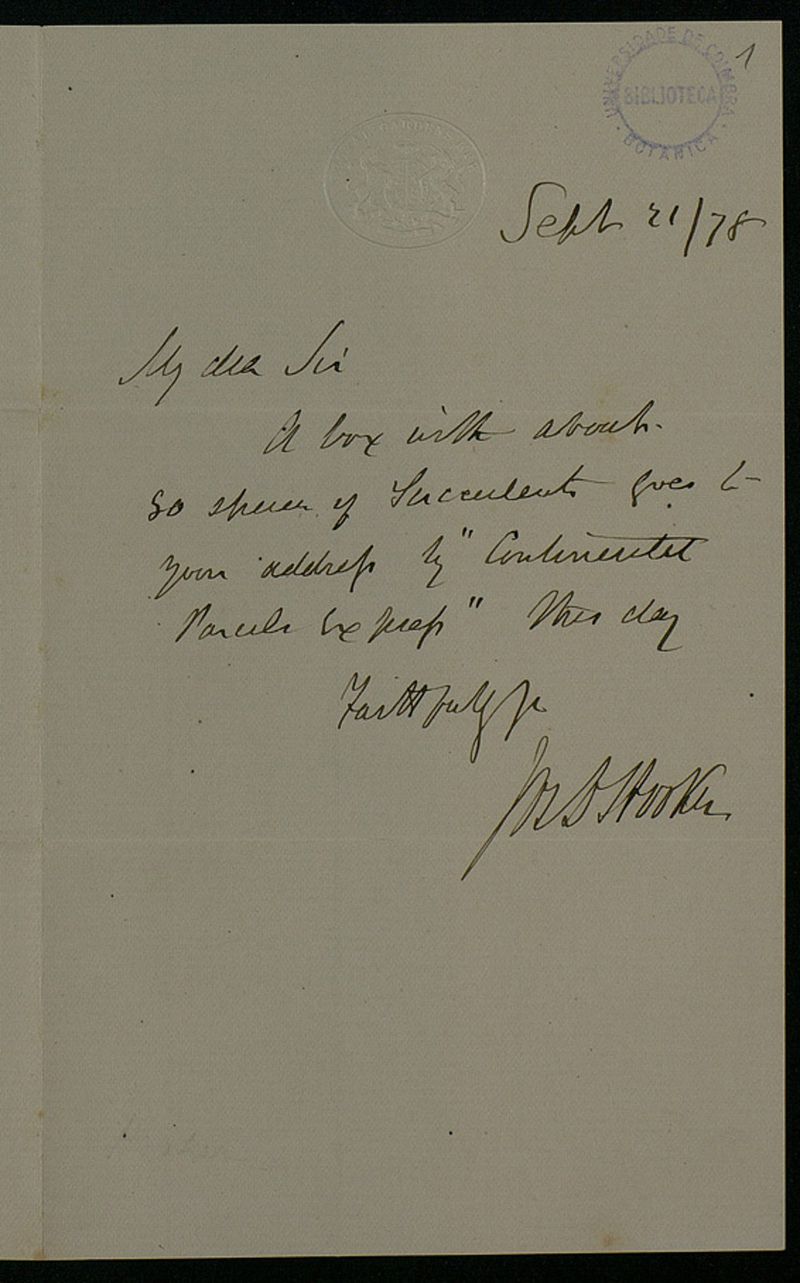 1
UNIVERSIDADE DE COIMBRA
BIBLIOTECA
BOTANICA
Sept 21/78
My dear Sir
A box with about
50 species of Succulents goes to
your address by "Continental
Parcels Express" this day
Faithfully yr
Jos D Hooker